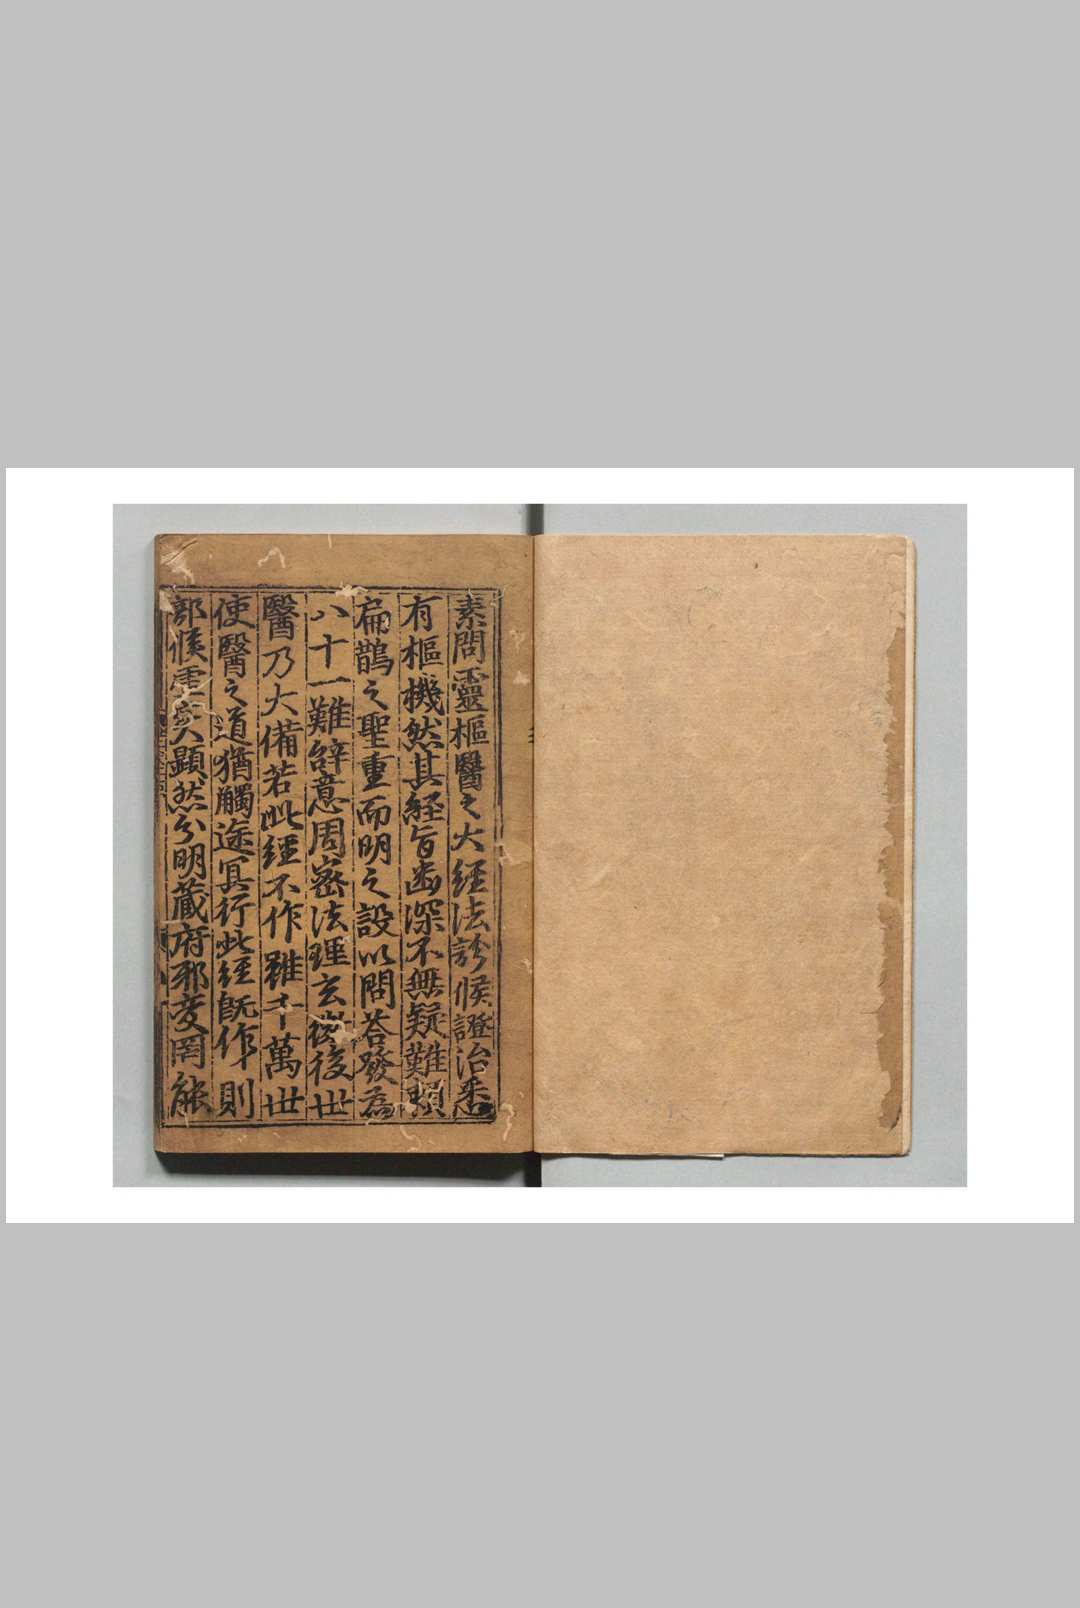 素問靈樞醫之大經法診候證治悉
有樞機然其経旨幽深不無疑難賴
扁鵲之聖重而明之設以問荅發爲
八十一難辭意周密法理玄微後世
醫乃大備若此經不作雖千萬世
使醫之道猶觸途冥行此經既作則
部候虛實顯然分明蔵府邪变罔能